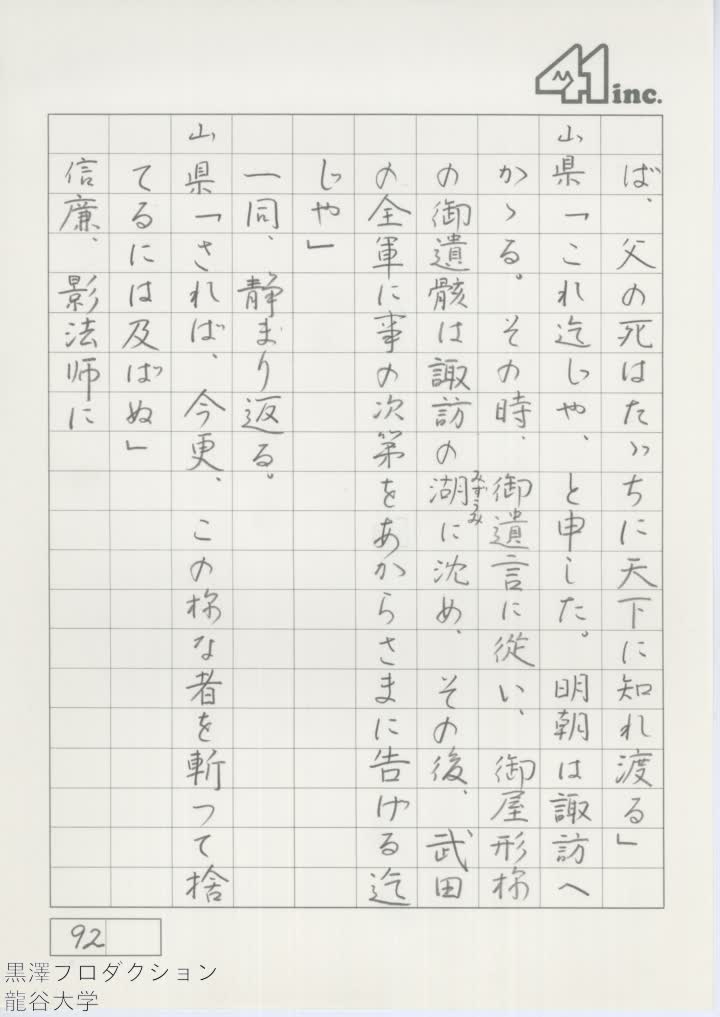 41 inc.
ば、父の死はたゞちに天下に知れ渡る」
山県「これ迄じゃ、と申した。明朝は諏訪へ
かゝる。その時、御遺言に従い、御屋形様
の御遺骸は諏訪の湖に沈め、その後、武田
みずうみ
の全軍に事の次第をあからさまに告げる迄
じゃ」
一同、静まり返る。
山県「されば、今更、この様な者を斬って捨
てるには及ばぬ」
信廉、影法師に
92
黒澤プロダクション
龍谷大学